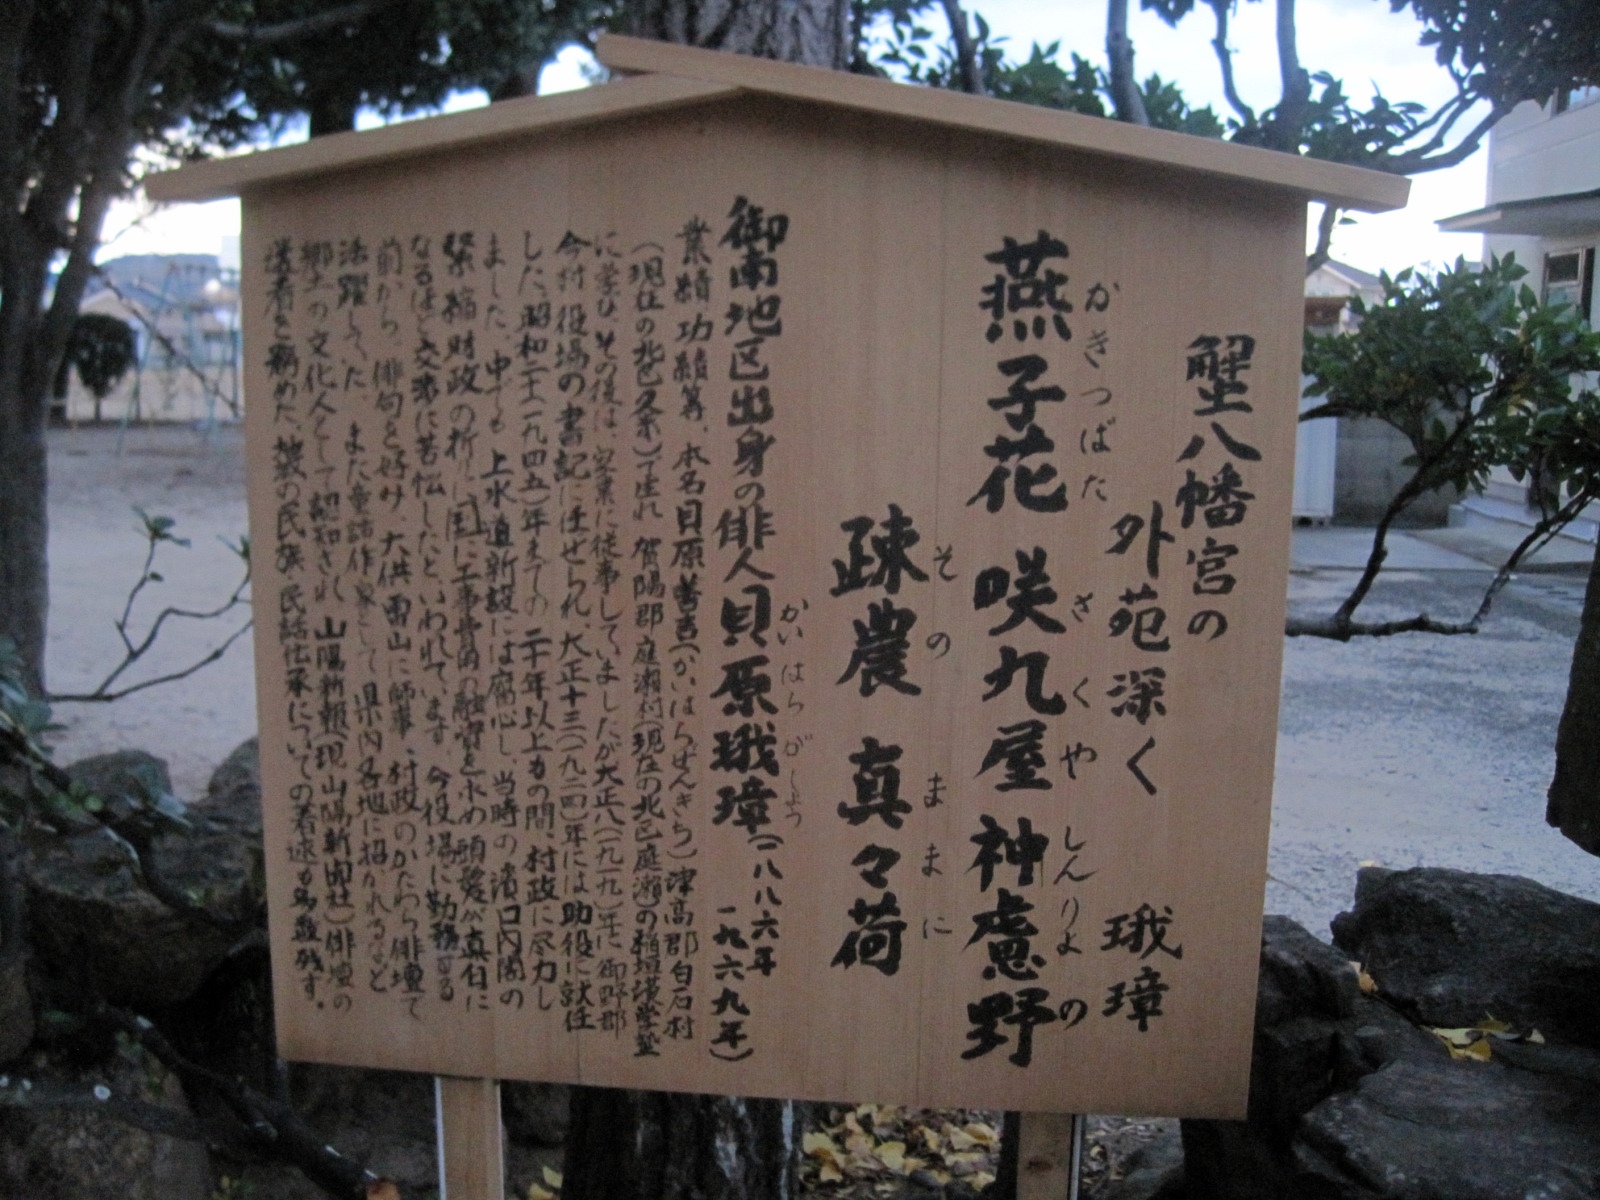 蟹八幡宮の
外苑深く 珴璋
燕子花 咲九屋 神慮野
かきつばた さくや しんりよの
疎農 真々荷
その まに まに
御南地区出身の俳人 貝原珴璋(一八八六年
かいはら がしよう
一九六九年)
業績功績等、本名貝原善吉(かいはらぜんきち)津高郡白石村
(現在の北区久米)で生れ 賀陽郡庭瀬村(現在の北区庭瀬)の稲垣漢学塾
に学び、その後は、家業に従事していましたが大正八(一九一九)年に御野郡
今村役場の書記に任ぜられ、大正十三(一九二四)年には助役に就任
した、昭和二十(一九四五)年までの 二十年以上もの間、村政に尽力し
ました、中でも 上水道新設には腐心し、当時の濱口内閣の
緊縮財政の折りに国に工事費用の融資を求め 頭髪が真白に
なるほど交渉に苦労したと、いわれています 今役場に勤務する
前から、俳句を好み、大供雷山に師事、村政のかたわら俳壇で
活躍していた、また童話作家として 県内各地に招かれるなど
郷土の文化人として認知され 山陽新報(現山陽新聞社)俳壇の
選者を務めた、数々の民族・民話伝承についての著述も多数残す。